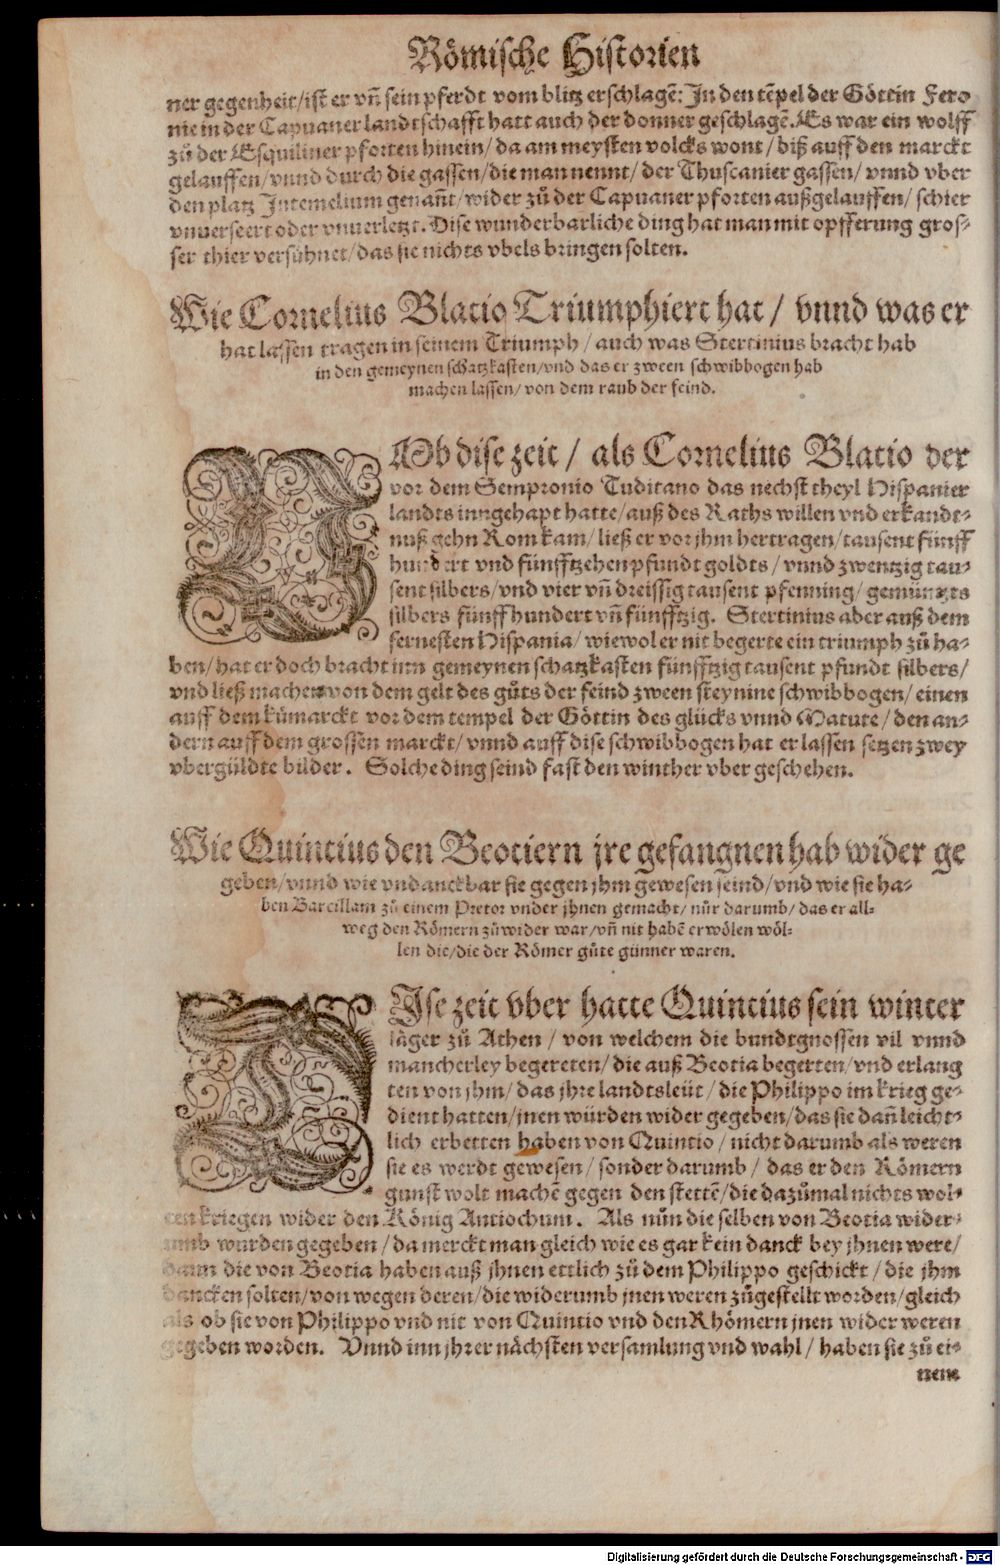 Römische Historien
ner gegenheit/ist er vñ sein pferdt vom blitz erschlagẽ: In den tẽpel der Göttin Fero
nie in der Capuaner landtschafft hatt auch der donner geschlagẽ. Es war ein wolff
zů der Esquiliner pforten hinein/da am meysten volcks wont/biß auff den marckt
gelauffen/vnnd durch die gassen/die man nennt/der Thuscanier gassen/vnnd vber
den platz Intemelium genañt/wider zů der Capuaner pforten außgelauffen/schier
vnuerseert oder vnuerletzt. Dise wunderbarliche ding hat man mit opfferung gros-
ser thier versühnet/das sie nichts vbels bringen solten.
Wie Cornelius Blatio Triumphiert hat/vnnd was er
hat lassen tragen in seinem Triumph/auch was Stertinius bracht hab
in den gemeynen schatzkasten/vnd das er zween schwibbogen hab
machen lassen/von dem raub der feind.
NOb dise zeit/als Cornelius Blatio der
vor dem Sempronio Tuditano das nechst theyl Hispanier
landts inngehapt hatte/auß des Raths willen vnd erkandt-
nuß gehn Rom kam/ließ er vor jhm hertragen/tausent fünff
hundert vnd fünfftzehen pfundt goldts/vnnd zwentzig tau-
sent silbers/vnd vier vñ dreissig tausent pfenning/gemüntzts
silbers fünff hundert vñ fünfftzig. Stertinius aber auß dem
fernesten Hispania/wiewol er nit begerte ein triumph zů ha-
ben/hat er doch bracht inn gemeynen schatzkasten fünfftzig tausent pfundt silbers/
vnd ließ machen von dem gelt des gůts der feind zween steynine schwibbogen/einen
auff dem kůmarckt vor dem tempel der Göttin des glücks vnnd Matute/den an-
dern auff dem grossen marckt/vnnd auff dise schwibbogen hat er lassen setzen zwey
vbergüldte bilder. Solche ding seind fast den winther vber geschehen.
Wie Quintius den Beotiern jre gefangnen hab wider ge
geben/vnnd wie vndanckbar sie gegen jhm gewesen seind/vnd wie sie ha-
ben Barcillam zů einem Pretor vnder jhnen gemacht/nůr darumb/das er all-
weg den Römern zůwider war/vñ nit habẽ erwölen wöl-
len die/die der Römer gůte günner waren.
DIse zeit vber hatte Quintius sein winter
läger zů Athen/von welchem die bundtgnossen vil vnnd
mancherley begereten/die auß Beotia begerten/vnd erlang
ten von jhm/das jhre landtsleüt/die Philippo im krieg ge-
dient hatten/jnen würden wider gegeben/das sie dañ leicht-
lich erbetten haben von Quintio/nicht darumb als weren
sie es werdt gewesen/sonder darumb/das er den Römern
gunst wolt machẽ gegen den stettẽ/die dazůmal nichts wol-
ten kriegen wider den König Antiochum. Als nůn die selben von Beotia wider-
umb wurden gegeben/da merckt man gleich wie es gar kein danck bey jhnen were/
dann die von Beotia haben auß jhnen ettlich zů dem Philippo geschickt/die jhm
dancken solten/von wegen deren/die widerumb jnen weren zůgestellt worden/gleich
als ob sie von Philippo vnd nit von Quintio vnd den Rhömern jnen wider weren
gegeben worden. Vnnd inn jhrer nächsten versamlung vnd wahl/haben sie zů ei-
nem
Digitalisierung gefördert durch die Deutsche Forschungsgemeinschaft - DFG